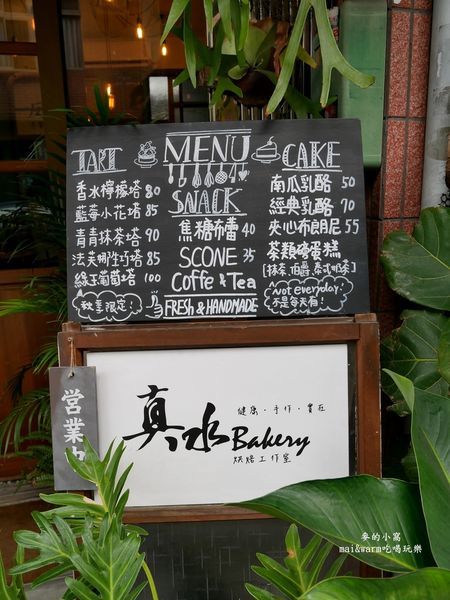 MENU
TART
香水檸檬塔 80
藍莓小花塔 85
青青抹茶塔 90
法芙娜生巧塔 85
綠玉葡萄塔 100
秋季限定
SNACK
焦糖布蕾 40
SCONE 35
Coffe & Tea
FRESH & HANDMADE
CAKE
南瓜乳酪 50
經典乳酪 70
夾心布朗尼 55
茶類磅蛋糕
[抹茶.伯爵.泰式奶茶]
Not everyday!
不是每天有!
營業中
健康・手作・實在
真水 Bakery
烘焙工作室
麥的小窩
mai&warm吃喝玩樂